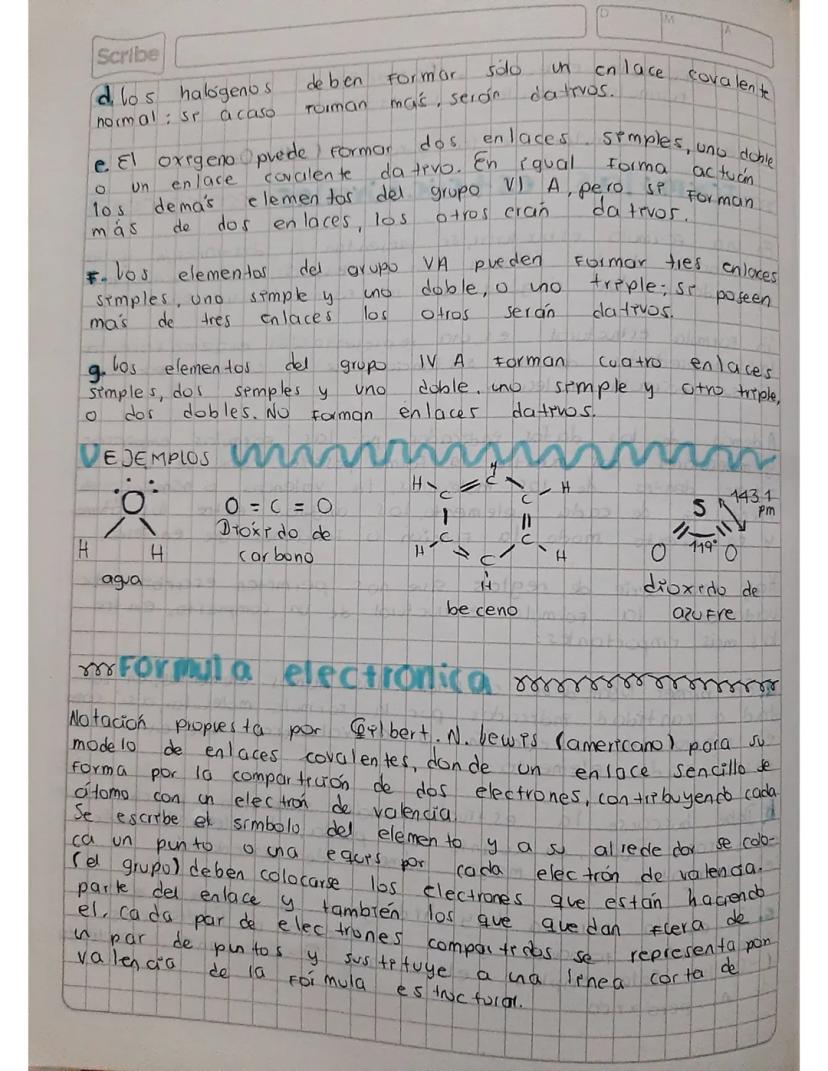 Scribe
D M A
d. los halogenos deben formar sólo un enlace covalente
normal: si acaso forman más, serán dativos.
e. El oxigeno puede formar dos enlaces simples, uno doble
o un enlace covalente dativo. En igual forma actúan
los demás elementos del grupo VI A, pero si forman
más de dos enlaces, los otros eran dativos.
F. los elementos del grupo VA pueden formar tres enlaces
simples, uno simple y uno doble, o uno triple; si poseen
más de tres enlaces los otros serán dativos.
g. los elementos del grupo IV A forman cuatro enlaces
simples, dos simples y uno doble, uno simple y otro triple,
o dos dobles. No forman enlaces dativos.
EJEMPLOS
O
H H
agua
O = C = O
Dióxido de
carbono
H C H C C H
H C C C H
H
beceno
S 143.1
pm
O 119° O
dioxido de
azufre
Formula electronica
Notación propuesta por Gilbert. N. Lewis (americano) para su
modelo de enlaces covalentes, donde un enlace sencillo se
forma por la compartición de dos electrones, contribuyendo cada
átomo con un electrón de valencia.
Se escribe el símbolo del elemento y a su alrededor se colo-
ca un punto o una equis por cada electrón de valencia.
(el grupo) deben colocarse los electrones que están haciendo
parte del enlace y también los que quedan fuera de
el, cada par de electrones compartidos se representa por
un par de puntos y sustituye a una línea corta de
valencia de la fórmula estructural.